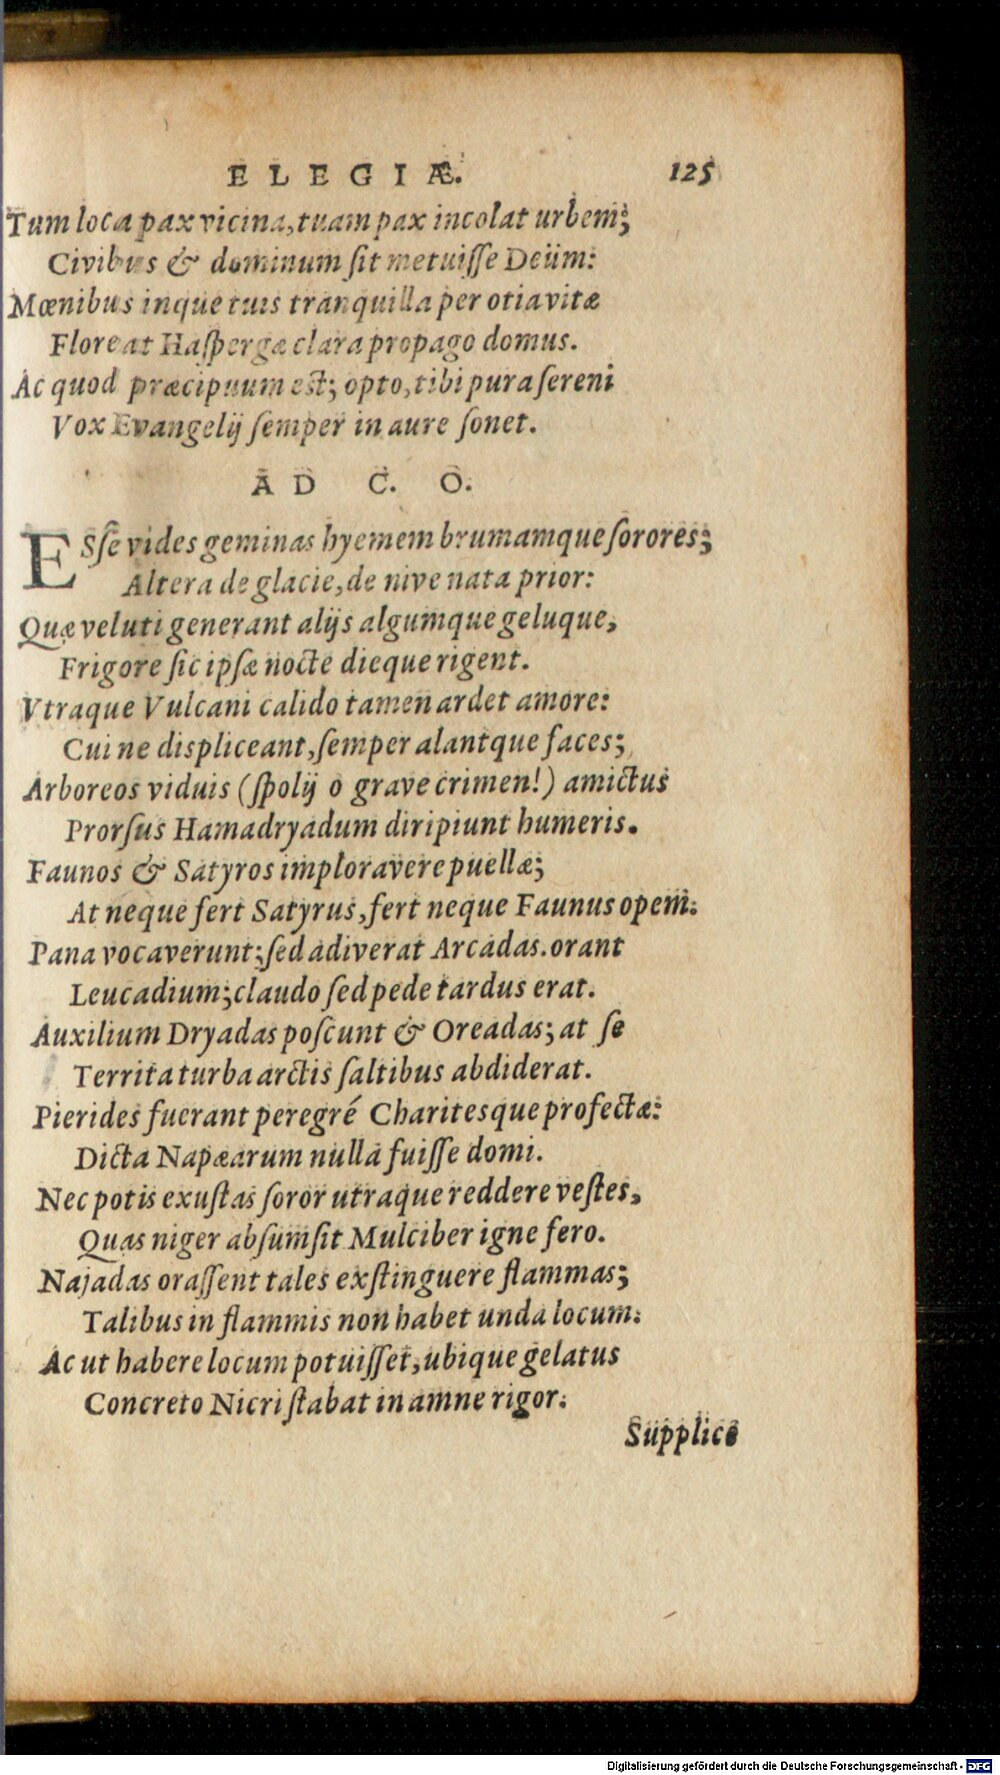 ELEGIÆ. 125
Tum loca pax vicina, tuam pax incolat urbem;
Civibus & dominum ſit metuiſſe Deüm:
Mœnibus inque tuis tranquilla per otia vitæ
Floreat Haſpergæ clara propago domus.
Ac quod præcipuum est; opto, tibi pura ſereni
Vox Evangelij ſemper in aure ſonet.
AD C. O.
ESſe vides geminas hyemem brumamque ſorores;
Altera de glacie, de nive nata prior:
Quæ veluti generant alijs algumque geluque,
Frigore ſic ipſæ nocte dieque rigent.
Vtraque Vulcani calido tamen ardet amore:
Cui ne displiceant, ſemper alantque faces;
Arboreos viduis (ſpolij o grave crimen!) amictus
Prorſus Hamadryadum diripiunt humeris.
Faunos & Satyros imploravere puellæ;
At neque fert Satyrus, fert neque Faunus opem.
Pana vocaverunt; ſed adiverat Arcadas. orant
Leucadium; claudo ſed pede tardus erat.
Auxilium Dryadas poſcunt & Oreadas; at ſe
Territa turba arctis ſaltibus abdiderat.
Pierides fuerant peregré Charitesque profectæ:
Dicta Napæarum nulla fuiſſe domi.
Nec potis exuſtas ſoror utraque reddere veſtes,
Quas niger abſumſit Mulciber igne fero.
Najadas oraſſent tales exſtinguere flammas;
Talibus in flammis non habet unda locum:
Ac ut habere locum potuiſſet, ubique gelatus
Concreto Nicri ſtabat in amne rigor.
Supplice
Digitalisierung gefördert durch die Deutsche Forschungsgemeinschaft - DFG